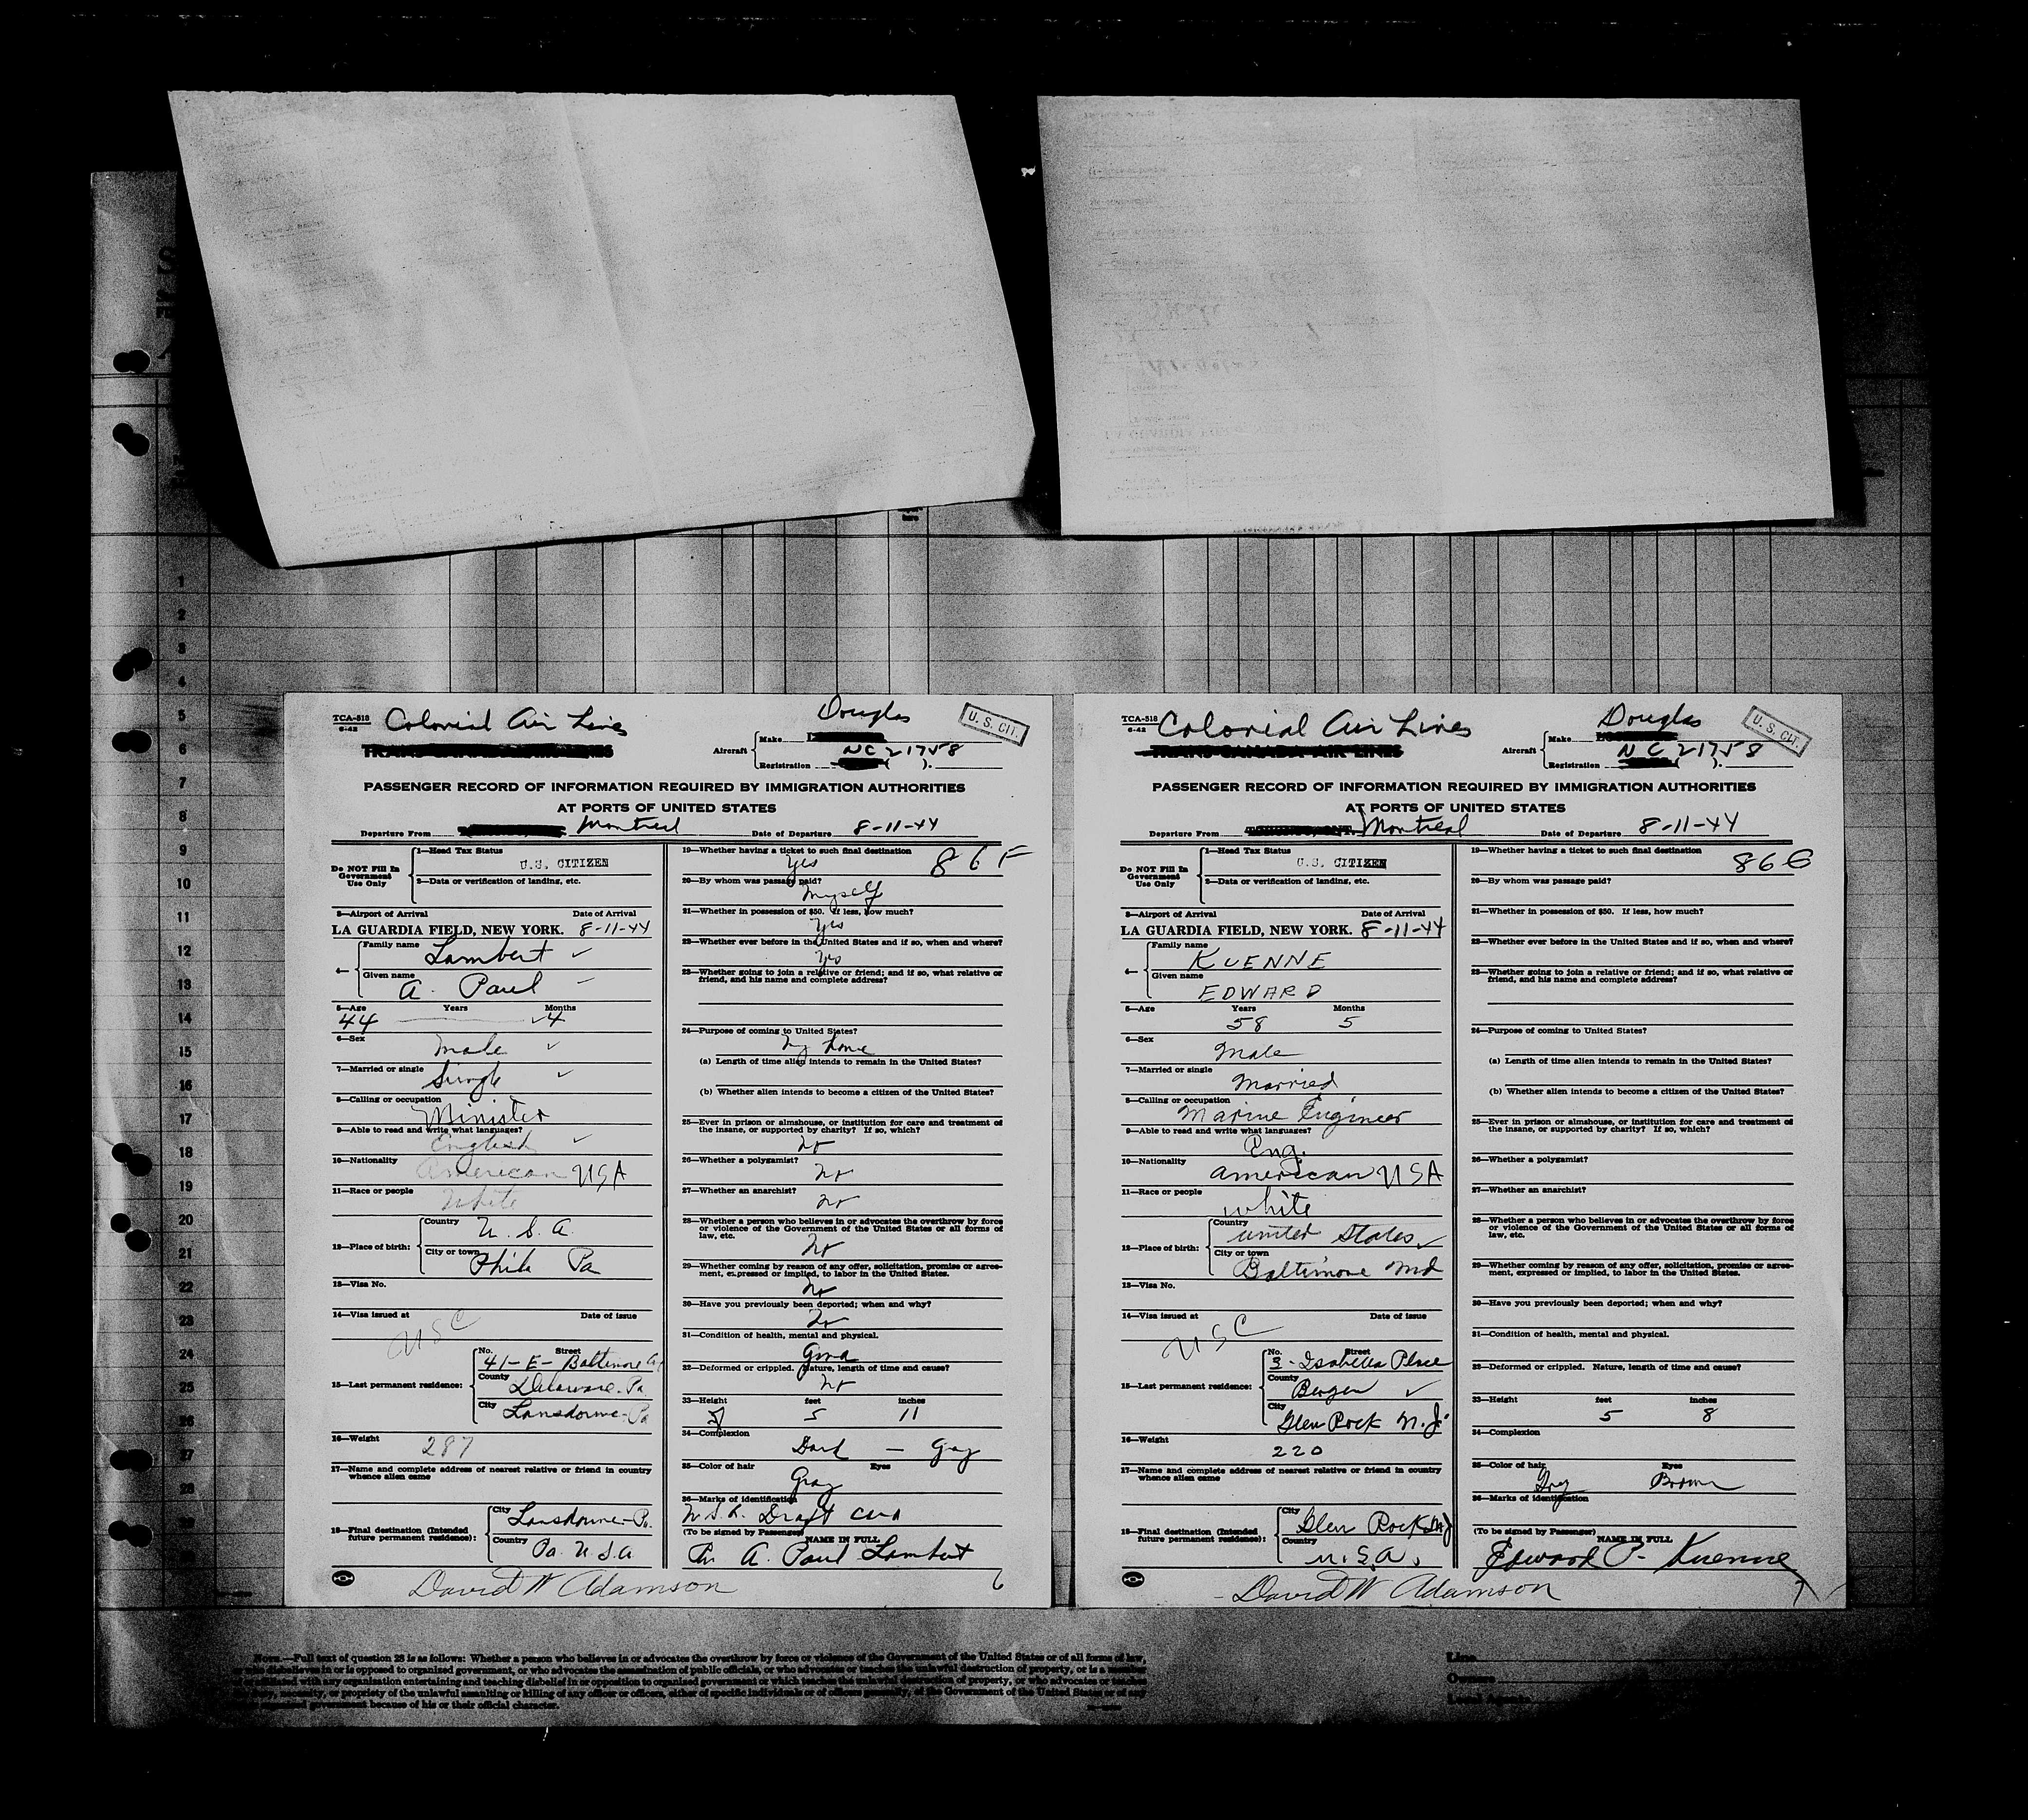 TCA-518
6-42
Colonial Air Lines
TRANS-CANADA AIR LINES
Douglas
U. S. CIT.
Aircraft
Make
NC 21758
Registration ( ).
PASSENGER RECORD OF INFORMATION REQUIRED BY IMMIGRATION AUTHORITIES
AT PORTS OF UNITED STATES
Departure From Montreal Date of Departure 8-11-44
Do NOT Fill In
Government
Use Only
1—Head Tax Status
U.S. CITIZEN
2—Data or verification of landing, etc.
3—Airport of Arrival Date of Arrival
LA GUARDIA FIELD, NEW YORK. 8-11-44
4—
Family name
Lambert
Given name
A. Paul
5—Age Years Months
44 4
6—Sex
Male
7—Married or single
Single
8—Calling or occupation
Minister
9—Able to read and write what languages?
English
10—Nationality
American USA
11—Race or people
White
12—Place of birth:
Country
U. S. A.
City or town
Phila Pa
13—Visa No.
14—Visa issued at Date of issue
USC
15—Last permanent residence:
No. Street
41-E-Baltimore
County
Delaware-Pa.
City
Lansdowne-Pa
16—Weight
287
17—Name and complete address of nearest relative or friend in country
whence alien came
18—Final destination (Intended
future permanent residence):
City
Lansdowne-Pa.
Country
Pa. U.S.A.
19—Whether having a ticket to such final destination
Yes
86 F
20—By whom was passage paid?
Myself
21—Whether in possession of $50. If less, how much?
Yes
22—Whether ever before in the United States and if so, when and where?
Yes
23—Whether going to join a relative or friend; and if so, what relative or
friend, and his name and complete address?
24—Purpose of coming to United States?
My home
(a) Length of time alien intends to remain in the United States?
(b) Whether alien intends to become a citizen of the United States?
25—Ever in prison or almshouse, or institution for care and treatment of
the insane, or supported by charity? If so, which?
No
26—Whether a polygamist?
No
27—Whether an anarchist?
No
28—Whether a person who believes in or advocates the overthrow by force
or violence of the Government of the United States or all forms of
law, etc.
No
29—Whether coming by reason of any offer, solicitation, promise or agree-
ment, expressed or implied, to labor in the United States.
No
30—Have you previously been deported; when and why?
No
31—Condition of health, mental and physical.
Good
32—Deformed or crippled. Nature, length of time and cause?
No
33—Height feet inches
5 11
34—Complexion
Dark — Gray
35—Color of hair Eyes
Gray
36—Marks of identification
Draft Card
(To be signed by Passenger) NAME IN FULL
A. Paul Lambert
David W Adamson
6
TCA-518
6-42
Colonial Air Lines
TRANS-CANADA AIR LINES
Douglas
U. S. CIT.
Aircraft
Make
NC 21758
Registration ( ).
PASSENGER RECORD OF INFORMATION REQUIRED BY IMMIGRATION AUTHORITIES
AT PORTS OF UNITED STATES
Departure From Montreal Date of Departure 8-11-44
Do NOT Fill In
Government
Use Only
1—Head Tax Status
U.S. CITIZEN
2—Data or verification of landing, etc.
3—Airport of Arrival Date of Arrival
LA GUARDIA FIELD, NEW YORK. 8-11-44
4—
Family name
KUENNE
Given name
EDWARD
5—Age Years Months
58 5
6—Sex
Male
7—Married or single
Married
8—Calling or occupation
Marine Engineer
9—Able to read and write what languages?
Eng.
10—Nationality
American USA
11—Race or people
white
12—Place of birth:
Country
United States
City or town
Baltimore Md
13—Visa No.
14—Visa issued at Date of issue
USC
15—Last permanent residence:
No. Street
3-Isabella Place
County
Bergen
City
Glen Rock N.J.
16—Weight
220
17—Name and complete address of nearest relative or friend in country
whence alien came
18—Final destination (Intended
future permanent residence):
City
Glen Rock NJ
Country
U.S.A.
19—Whether having a ticket to such final destination
86 G
20—By whom was passage paid?
21—Whether in possession of $50. If less, how much?
22—Whether ever before in the United States and if so, when and where?
23—Whether going to join a relative or friend; and if so, what relative or
friend, and his name and complete address?
24—Purpose of coming to United States?
(a) Length of time alien intends to remain in the United States?
(b) Whether alien intends to become a citizen of the United States?
25—Ever in prison or almshouse, or institution for care and treatment of
the insane, or supported by charity? If so, which?
26—Whether a polygamist?
27—Whether an anarchist?
28—Whether a person who believes in or advocates the overthrow by force
or violence of the Government of the United States or all forms of
law, etc.
29—Whether coming by reason of any offer, solicitation, promise or agree-
ment, expressed or implied, to labor in the United States.
30—Have you previously been deported; when and why?
31—Condition of health, mental and physical.
32—Deformed or crippled. Nature, length of time and cause?
33—Height feet inches
5 8
34—Complexion
35—Color of hair Eyes
Grey Brown
36—Marks of identification
(To be signed by Passenger) NAME IN FULL
Edward P. Kuenne
David W Adamson
7
1
2
3
4
5
6
7
8
9
10
11
12
13
14
15
16
17
18
19
20
21
22
23
24
25
26
27
28
NOTE.—Full text of question 28 is as follows: Whether a person who believes in or advocates the overthrow by force or violence of the Government of the United States or of all forms of law,
who disbelieves in or is opposed to organized government, or who advocates the assassination of public officials, or who advocates or teaches the unlawful destruction of property, or is a member
with any organization entertaining and teaching disbelief in or opposition to organized government or which teaches the unlawful destruction of property, or who advocates or teaches
the duty, necessity, or propriety of the unlawful assaulting or killing of any officer or officers, either of specific individuals or of officers generally, of the Government of the United States or of any
organized government because of his or their official character.
Line
Owners
Local Agents